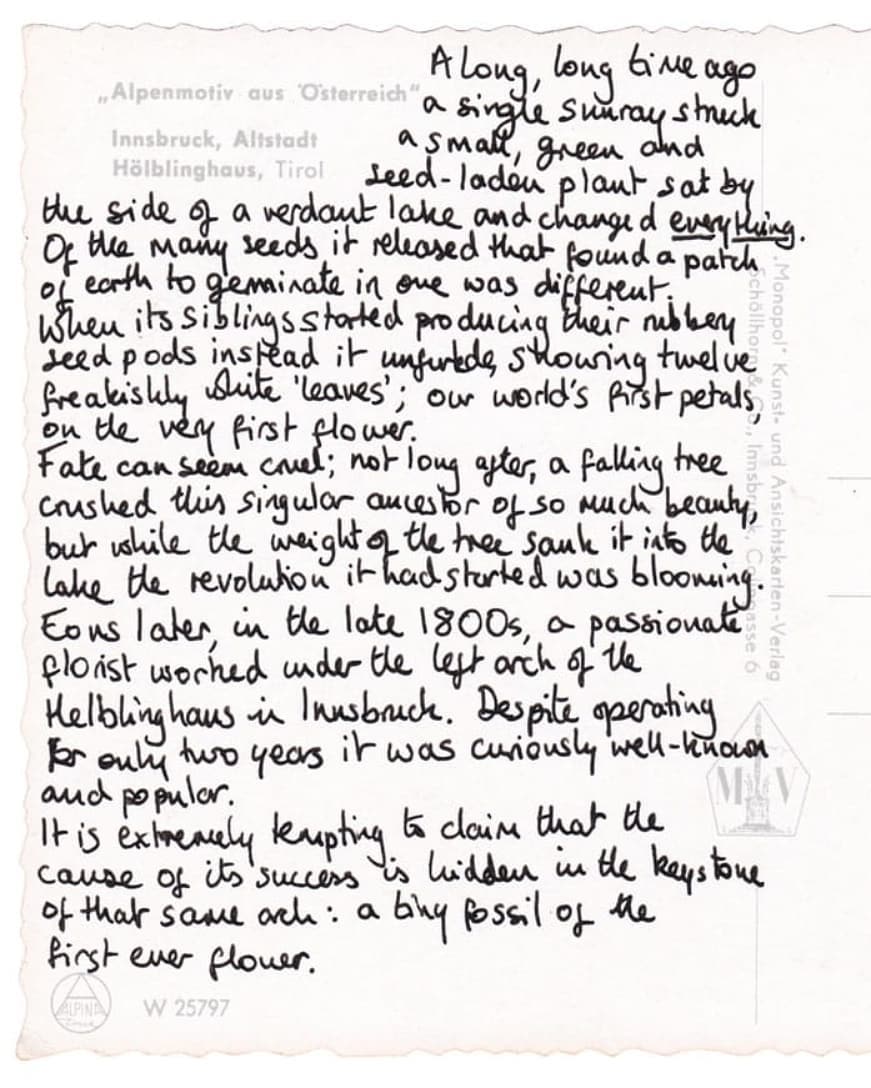 „Alpenmotiv aus Österreich"
Innsbruck, Altstadt
Hölblinghaus, Tirol
A long, long time ago
a single sunray struck
a small, green and
seed-laden plant sat by
the side of a verdant lake and changed everything.
Of the many seeds it released that found a patch
of earth to germinate in one was different.
When its siblings started producing their rubbery
seed pods instead it unfurled, showing twelve
freakishly white 'leaves'; our world's first petals,
on the very first flower.
Fate can seem cruel; not long after, a falling tree
crushed this singular ancestor of so much beauty,
but while the weight of the tree sank it into the
lake the revolution it had started was blooming.
Eons later, in the late 1800s, a passionate
florist worked under the left arch of the
Helblinghaus in Innsbruck. Despite operating
for only two years it was curiously well-known
and popular.
It is extremely tempting to claim that the
cause of its success is hidden in the keystone
of that same arch: a tiny fossil of the
first ever flower.
„Monopol" Kunst- und Ansichtskarten-Verlag
Schöllhorn & Co., Innsbruck, 
MV
ALPINA
W 25797